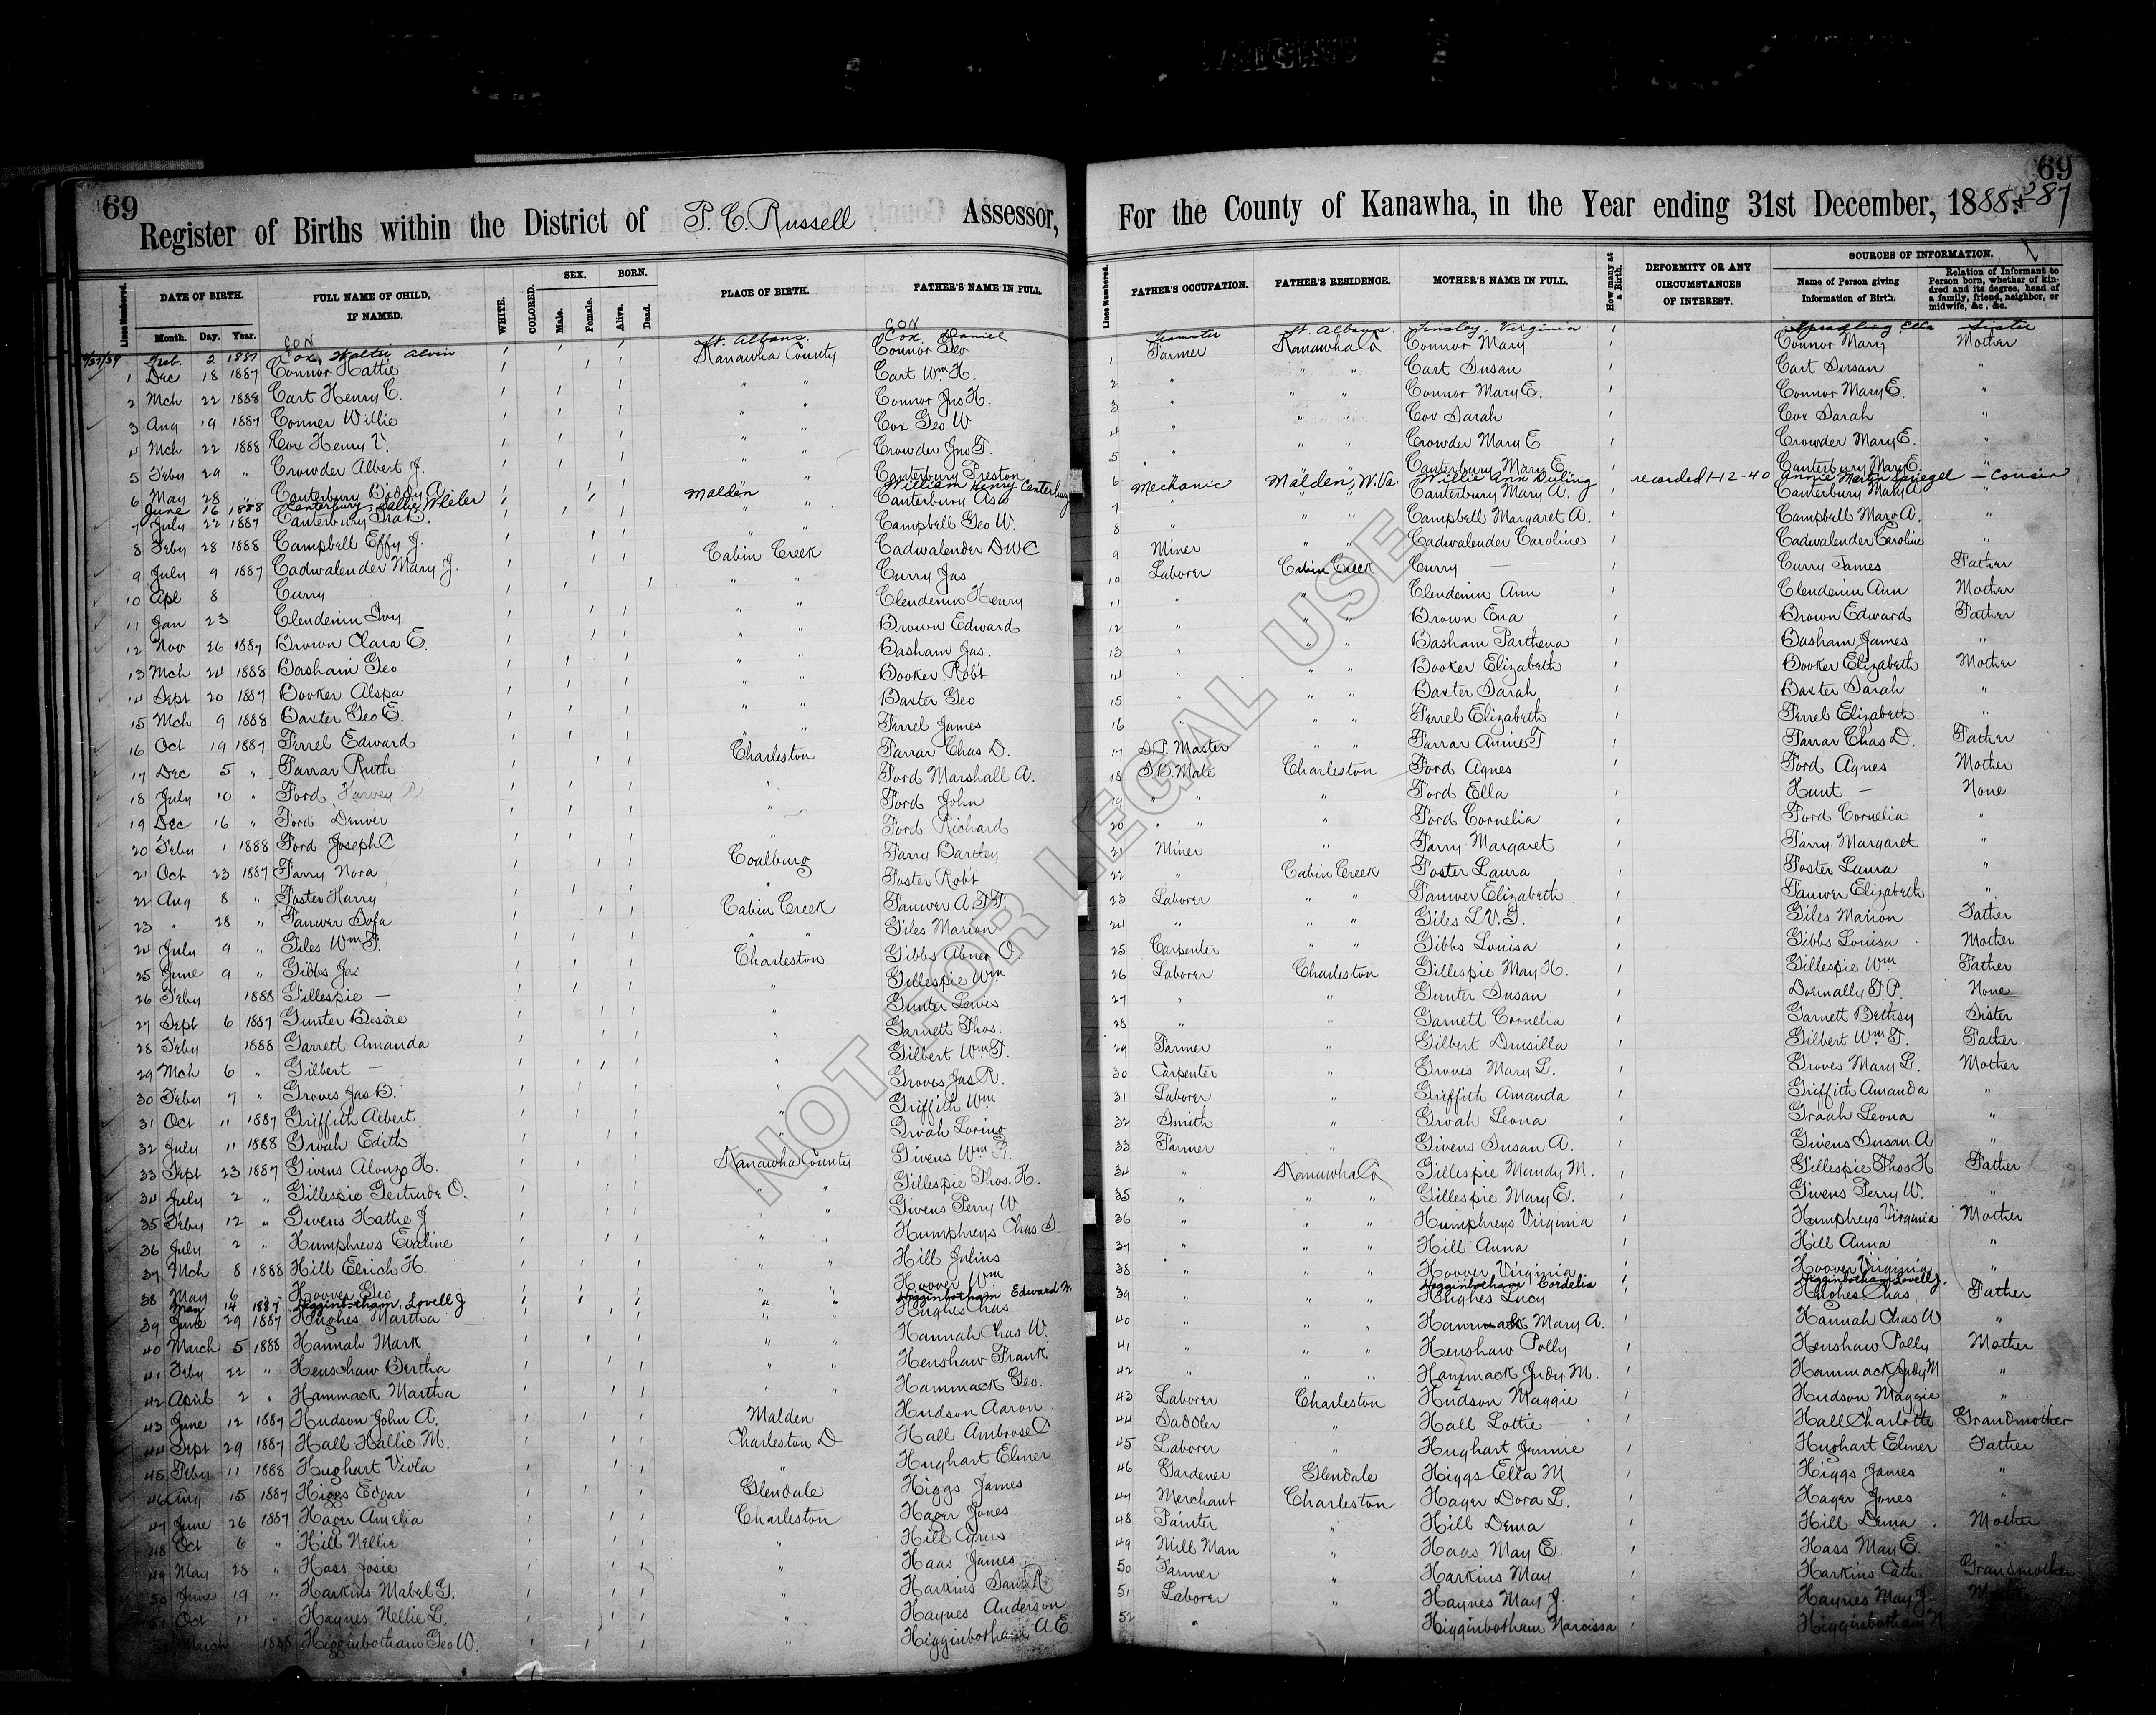 69
Register of Births within the District of P. C. Russell Assessor,
Lines Numbered. DATE OF BIRTH. Month. Day. Year. FULL NAME OF CHILD, IF NAMED. WHITE. COLORED. SEX. Male. Female. BORN. Alive. Dead. PLACE OF BIRTH. FATHER'S NAME IN FULL.
Feb. 2 1887 Cox, Walter Alvin St. Albans. Cox, Daniel
1 Dec 18 1887 Connor Hattie Kanawha County Connor Geo
2 Mch 22 1888 Cart Henry C. " " Cart Wm H.
3 Aug 19 1887 Conner Willie " " Connor Jno H.
4 Mch 22 1888 Cox Henry V. " " Cox Geo W
5 Feby 29 " Crowder Albert J. " " Crowder Jno T.
6 May 28 " Canterbury Biddy A. " " Canterbury Preston
June 16 1888 Canterbury, Sallie Wheler Malden William Henry Canterbury
7 July 22 1887 Canterbury Ira B. " " Canterbury Asa
8 Feby 28 1888 Campbell Effy J. " Campbell Geo W.
9 July 9 1887 Cadwalender Mary J. Cabin Creek Cadwalender DWC
10 Apl 8 Curry " " Curry Jas
11 Jan 23 Clendenin Ivy " " Clendenin Henry
12 Nov 26 1887 Brown Clara E. " " Brown Edward
13 Mch 24 1888 Basham Geo " " Basham Jas.
14 Sept 20 1887 Booker Alspa " " Booker Robt
15 Mch 9 1888 Baxter Geo E. " " Baxter Geo
16 Oct 19 1887 Ferrel Edward " " Ferrel James
17 Dec 5 " Farrar Ruth Charleston Farrar Chas D.
18 July 10 " Ford Harvey R " Ford Marshall A.
19 Dec 16 " Ford Denver " Ford John
20 Feby 1 1888 Ford Joseph C " Ford Richard
21 Oct 23 1887 Farry Nora Coalburg Farry Bartley
22 Aug 8 " Foster Harry " Foster Robt
23 " 28 " Fauwer Sofa Cabin Creek Fauwer A.T.F.
24 July 9 " Giles Wm F. " " Giles Marion
25 June 9 " Gibbs Jas Charleston Gibbs Abner O.
26 Feby 1888 Gillespie — " Gillespie Wm
27 Sept 6 1887 Gunter Bessie " Gunter Lewis
28 Feby 1888 Garrett Amanda " Garnett Thos.
29 Mch 6 " Gilbert — " Gilbert Wm T.
30 Feby 7 " Groves Jas B. " Groves Jas R.
31 Oct 11 1887 Griffith Albert " Griffith Wm
32 July 11 1888 Groah Edith " Groah Loring
33 Sept 23 1887 Givens Alonzo H. Kanawha County Givens Wm
34 July 2 " Gillespie Gertrude O. " " Gillespie Thos. H.
35 Feby 12 " Givens Hattie J. " " Givens Perry W
36 July 2 " Humphreys Evaline " " Humphreys Chas S.
37 Mch 8 1888 Hill Elrich H. " " Hill Julius
38 May 6 " Hoover Geo " " Hoover Wm
May 14 1887 Higginbotham, Lovell J " " Higginbotham Edward W.
39 June 29 1887 Hughes Martha " " Hughes Chas
40 March 5 1888 Hannah Mark " " Hannah Chas W.
41 Feby 22 " Henschaw Bertha " " Henshaw Frank
42 April 2 " Hammack Martha " " Hammack Geo.
43 June 12 1887 Hudson John A. Malden Hudson Aaron
44 Sept 29 1887 Hall Hallie M. Charleston D Hall Ambrose C
45 Feby 11 1888 Hughart Viola " Hughart Elmer
46 Aug 15 1887 Higgs Edgar Glendale Higgs James
47 June 26 1887 Hager Amelia Charleston Hager Jones
48 Oct 6 " Hill Nellie " Hill Cyrus
49 May 28 " Hass Josie " Haas James
50 June 19 " Harkins Mabel G. " Harkins Saml R
51 Oct 11 " Haynes Nellie L. " Haynes Anderson
March 1888 Higginbotham Geo W. " Higginbotham A E
69
For the County of Kanawha, in the Year ending 31st December, 1888 & 287
Lines Numbered. FATHER'S OCCUPATION. FATHER'S RESIDENCE. MOTHER'S NAME IN FULL. How many at a Birth. DEFORMITY OR ANY CIRCUMSTANCES OF INTEREST. SOURCES OF INFORMATION. Name of Person giving Information of Birth. Relation of Informant to Person born, whether of kindred and its degree, head of a family, friend, neighbor, or midwife, &c., &c.
Teamster St. Albans. Tinsley, Virginia Spradling Ella Sister
1 Farmer Kanawha Co Connor Mary Connor Mary Mother
2 " " " Cart Susan Cart Susan "
3 " " " Connor Mary E. Connor Mary E. "
4 " " " Cox Sarah Cox Sarah "
5 " " " Crowder Mary E Crowder Mary E. "
6 Canterbury Mary E. Canterbury Mary E. "
Mechanic Malden, W.Va. Willie Ann Duling recorded 1-12-40 Annie Martin Spiegel — Cousin
7 " " " Canterbury Mary A. Canterbury Mary A "
8 " " " Campbell Margaret A. Campbell Marg A. "
9 Miner " " Cadwalender Caroline Cadwalender Caroline "
10 Laborer Cabin Creek Curry — Curry James Father
11 " " " Clendenin Ann Clendenin Ann Mother
12 " " " Brown Ena Brown Edward Father
13 " " " Basham Parthena Basham James "
14 " " " Booker Elizabeth Booker Elizabeth Mother
15 " " " Baxter Sarah Baxter Sarah "
16 " " " Ferrel Elizabeth Ferrel Elizabeth "
17 S.B. Master " " Farrar Annie T Farrar Chas D. Father
18 S.B. Mate Charleston Ford Agnes Ford Agnes Mother
19 " " " Ford Ella Hunt — None
20 " " " Ford Cornelia Ford Cornelia "
21 Miner " Farry Margaret Farry Margaret "
22 " Cabin Creek Foster Laura Foster Laura "
23 Laborer " " Fauwer Elizabeth Fauwer Elizabeth "
24 " " " Giles L.V.G. Giles Marion Father
25 Carpenter " " Gibbs Louisa Gibbs Louisa Mother
26 Laborer Charleston Gillespie May H. Gillespie Wm Father
27 " " Gunter Susan Donnally S.P. None
28 " " Garnett Cornelia Garnett Bethsy Sister
29 Farmer " Gilbert Drusilla Gilbert Wm T. Father
30 Carpenter " Groves Mary L. Groves Mary L. Mother
31 Laborer " Griffith Amanda Griffith Amanda "
32 Smith " Groah Leona Groah Leona "
33 Farmer " Givens Susan A. Givens Susan A "
34 " Kanawha Co Gillespie Mandy M. Gillespie Thos H Father
35 " " " Gillespie Mary E. Givens Perry W. "
36 " " " Humphreys Virginia Humphreys Virginia Mother
37 " " " Hill Anna Hill Anna "
38 " " " Hoover Virginia Hoover Virginia "
Higginbotham Cordelia Higginbotham Lovell J.
39 " " " Hughes Lucy Hughes Chas Father
40 " " " Hannah Mary A. Hannah Chas W "
41 " " " Henshaw Polly Henshaw Polly Mother
42 " " " Hammack Judy M. Hammack Judy M "
43 Laborer Charleston Hudson Maggie Hudson Maggie "
44 Saddler " Hall Lottie Hall Charlotte Grandmother
45 Laborer " Hughart Jennie Hughart Elmer Father
46 Gardener Glendale Higgs Ella M Higgs James "
47 Merchant Charleston Hager Dora L. Hager Jones "
48 Painter " Hill Dema Hill Dema Mother
49 Mill Man " Haas May E Hass May E. "
50 Farmer " Harkins May Harkins Cath. Grandmother
51 Laborer " Haynes May J. Haynes May J. Mother
52 " Higginbotham Narcissa Higginbotham N
NOT FOR LEGAL USE